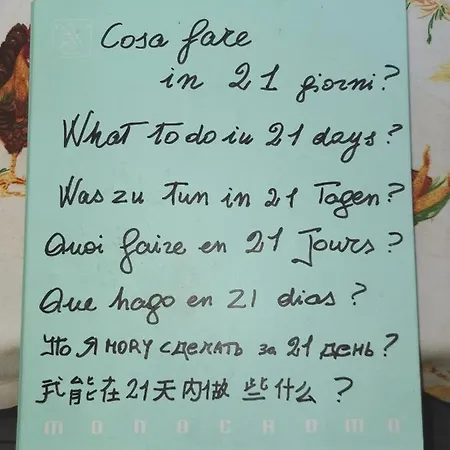 Cosa fare
in 21 giorni?
What to do in 21 days?
Was zu tun in 21 Tagen?
Quoi faire en 21 Jours?
Que hago en 21 dias?
Что Я могу сделать за 21 день?
我能在21天内做些什么?
MONOCHROMO